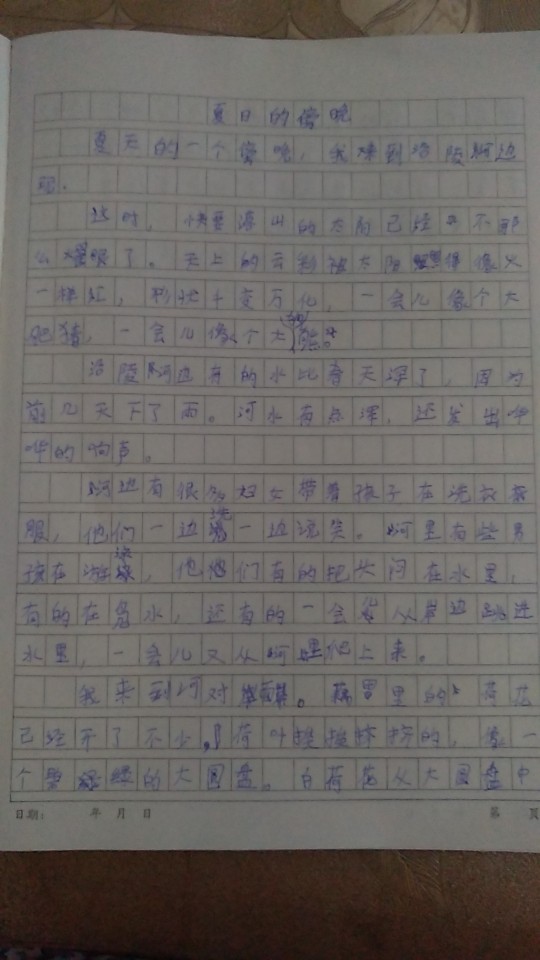 夏日的傍晚
夏天的一个傍晚,我来到洛陵河边
玩.
这时,快要落山的太阳已经不那
么耀眼了。天上的云彩被太阳像火
一样红,形状千变万化,一会儿像个大
肥猪,一会儿像个大狗熊。
洛陵河边有的水比春天深了,因为
前几天下了雨。河水有点深,还发出哗
哗的响声。
河边有很多妇女带着孩子在洗衣
服,他们一边洗一边说笑。河里有些男
孩在游泳,他们有的把头闷在水里,
有的在凫水,还有的一会从岸边跳进
水里,一会儿又从河里爬上来。
我来到河对岸。藕里的荷花
已经开了不少,荷叶挨挨挤挤的,像一
个绿的大圆盘。白荷花从大圆盘中
日期: 年 月 日
第 页